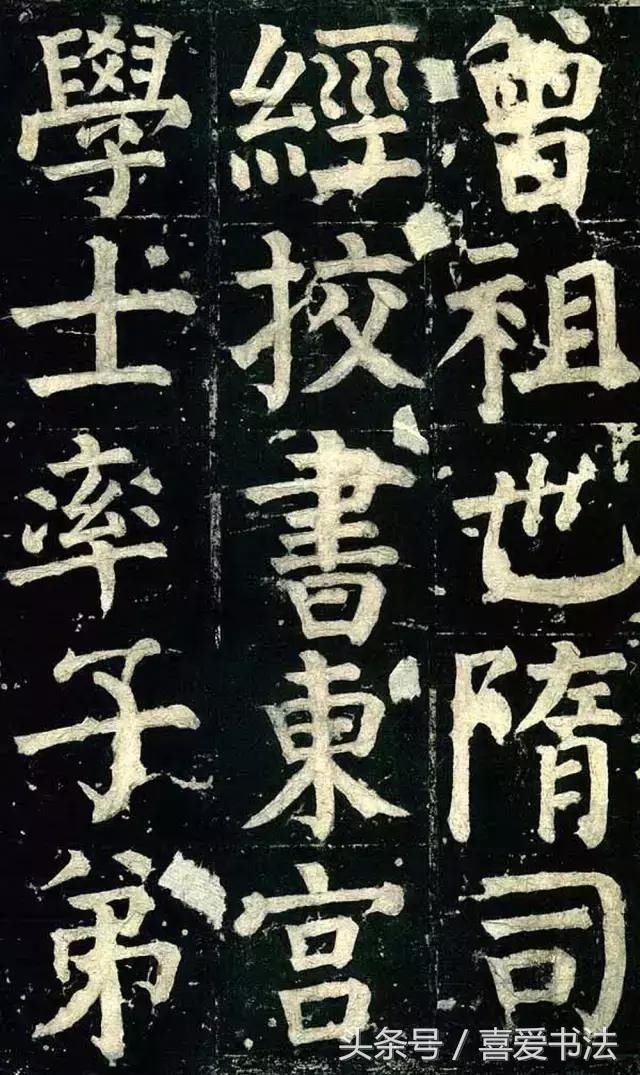 曾祖世隋司
經挍書東宮
學士率子弟
头条号 / 喜爱书法